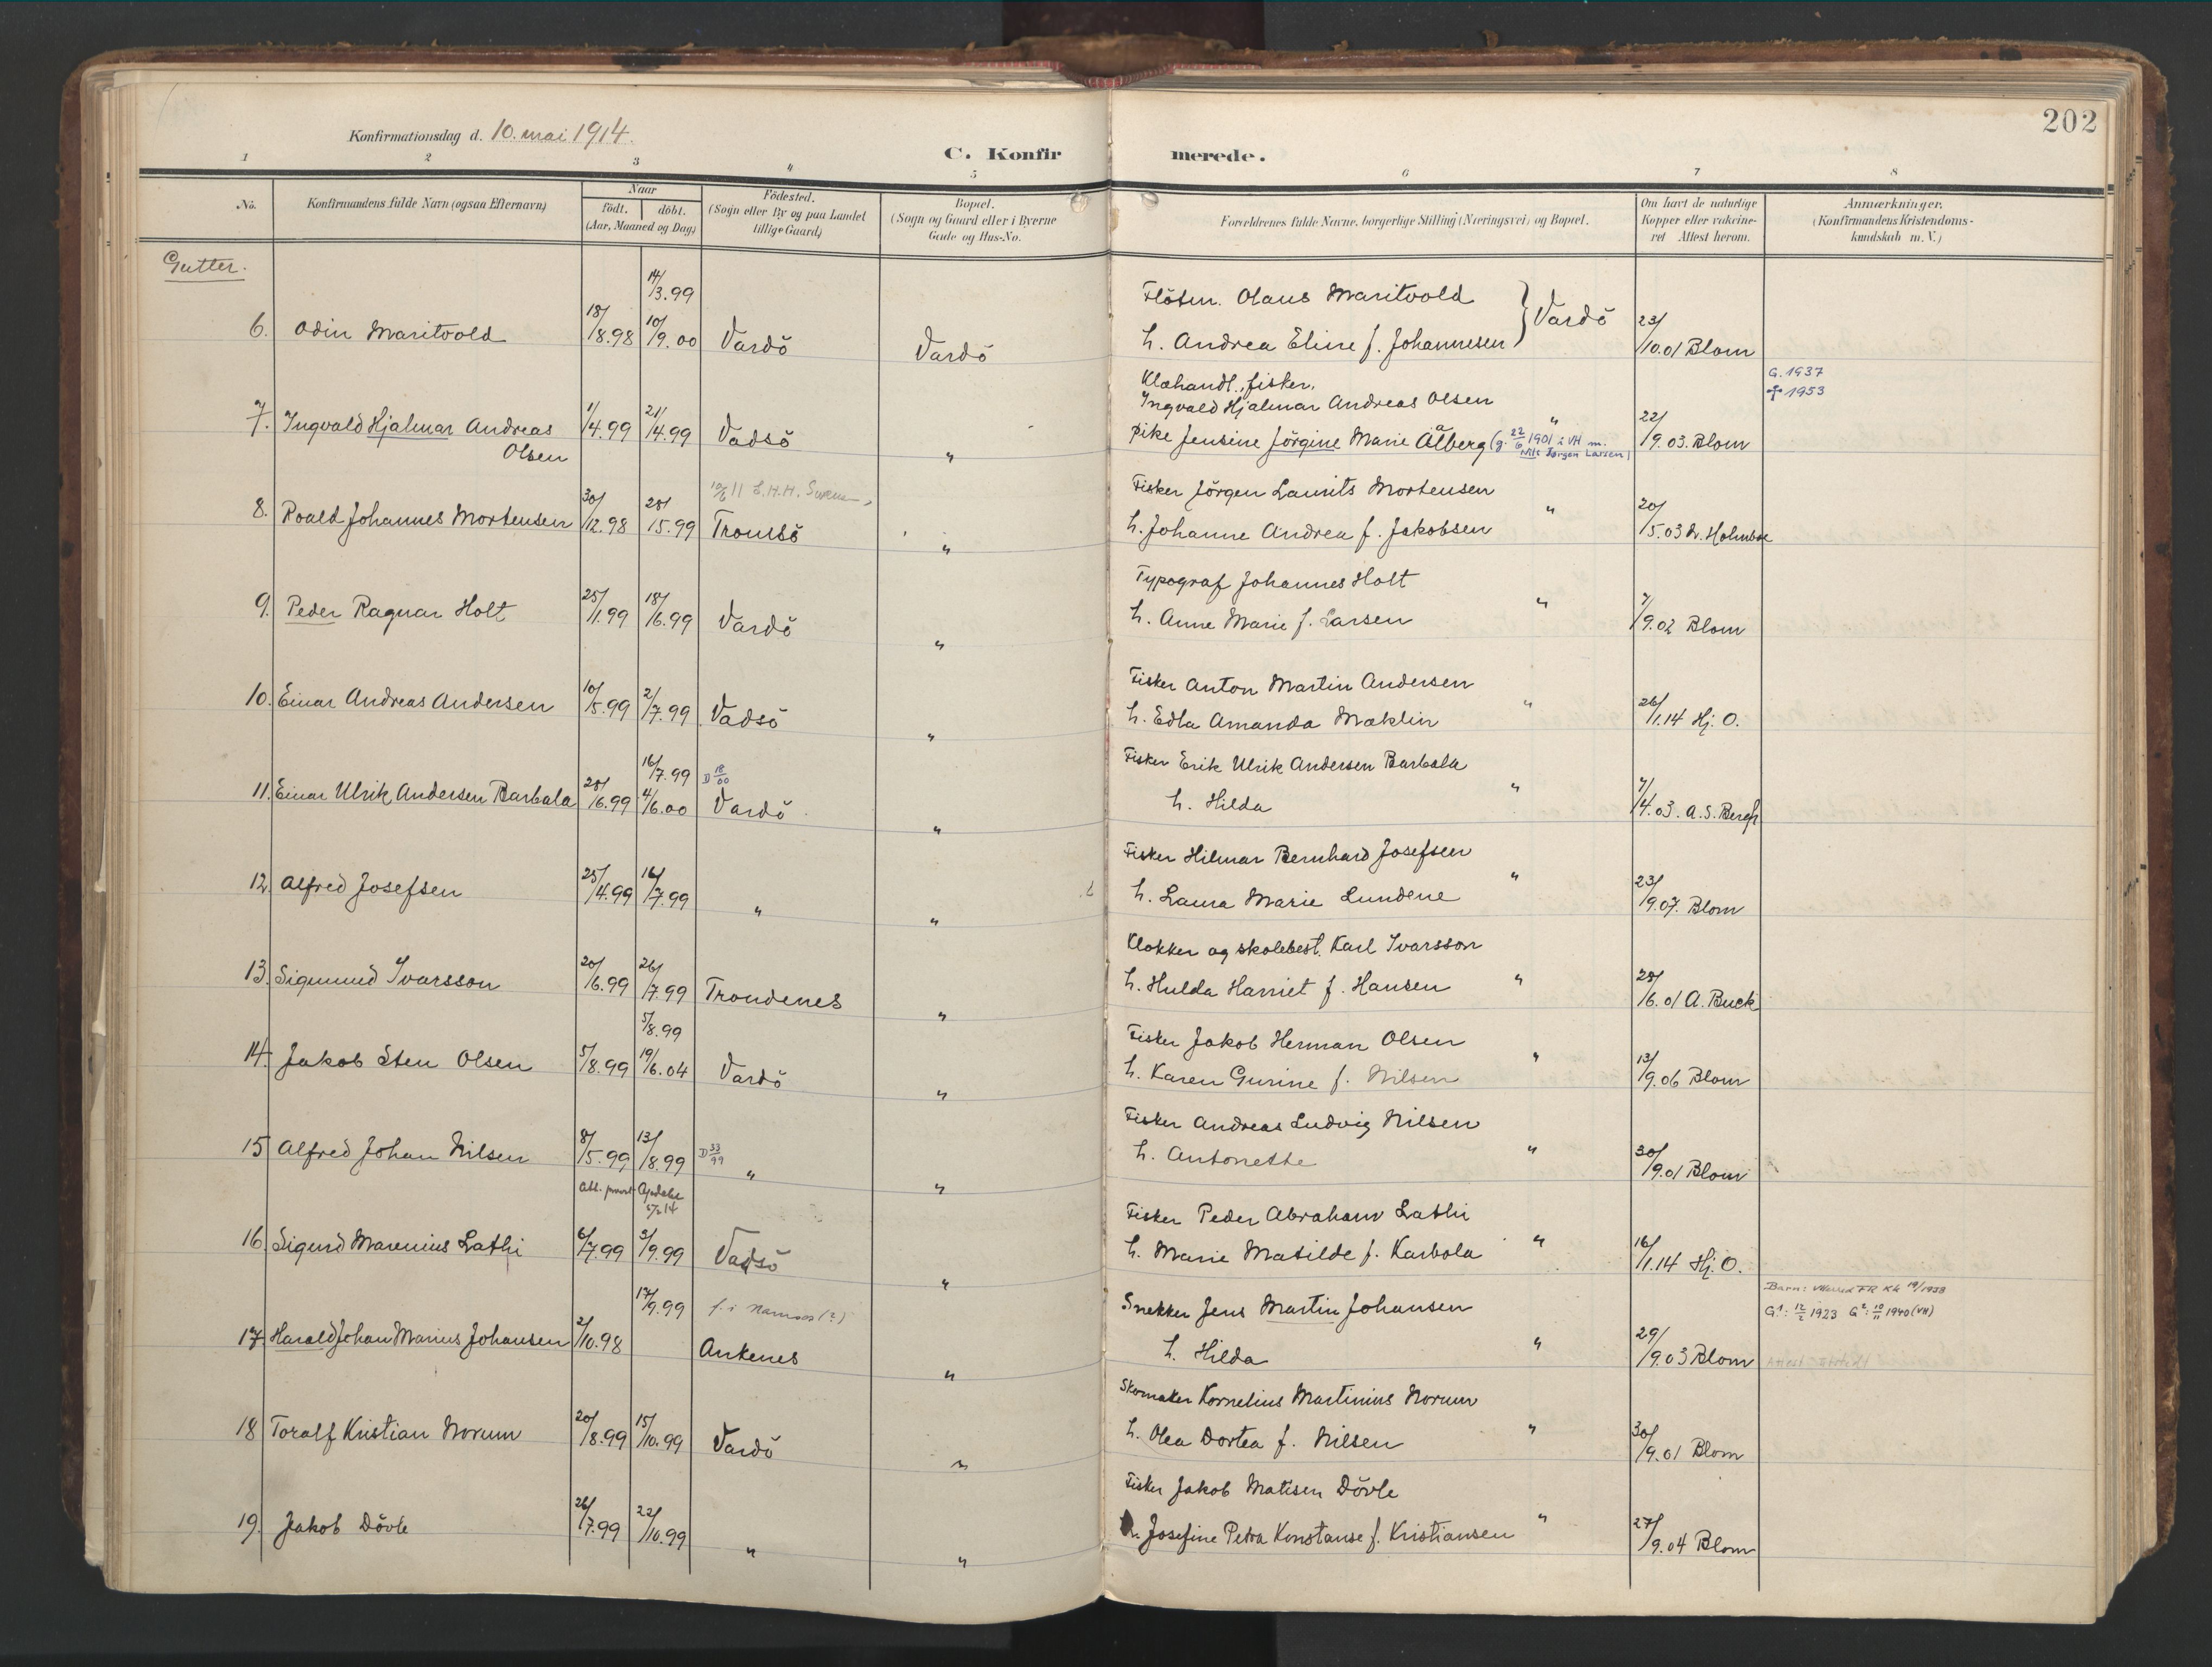 202
Konfirmationsdag d. 10. mai 1914.
C. Konfir merede.
1 2 3 4 5 6 7 8
No. Konfirmandens fulde Navn (ogsaa Efternavn) Naar födt. döbt. (Aar, Maaned og Dag) Födested. (Sogn eller By og paa Landet tillige Gaard) Bopæl. (Sogn og Gaard eller i Byerne Gade og Hus-No. Forældrenes fulde Navne, borgerlige Stilling (Næringsvei) og Bopæl. Om havt de naturlige Kopper eller vakcineret Attest herom. Anmærkninger. (Konfirmandens Kristendomskundskab m. V.)
Gutter.
14/3.99 Flötm. Olaus Maritvold
6. Odin Maritvold 18/8.98 10/9.00 Vardö Vardö h. Andrea Eline f. Johannesen } Vardö 23/10.01 Blom
G. 1937
✝ 1953
Klæhandl., fisker,
Ingvald Hjalmar Andreas Olsen "
7. Ingvald Hjalmar Andreas 1/4.99 21/4.99 Vadsö " Pike Jensine Jörgine Marie Ålberg (g. 22/6 1901 i VH m. 22/9.03. Blom
Olsen Nils Jørgen Larsen)
Fisker Jörgen Laurits Mortensen
8. Roald Johannes Mortensen 30/12.98 28/5.99 Tromsö " h. Johanne Andrea f. Jakobsen " 20/5.03 L. Holmboe
Typograf Johannes Holt
9. Peder Ragnar Holt 25/1.99 18/6.99 Vardö " h. Anne Marie f. Larsen " 7/9.02 Blom
Fisker Anton Martin Andersen
10. Einar Andreas Andersen 10/5.99 2/7.99 Vadsö " h. Edla Amanda Mæklin " 26/1.14 Hj. O.
16/7.99 D 18/00 Fisker Erik Ulrik Andersen Barbala
11. Einar Ulrik Andersen Barbala 28/6.99 4/6.00 Vardö " h. Hilda " 7/4.03. A. S. Bergh
Fisker Hilmar Bernhard Josefsen
12. Alfred Josefsen 25/4.99 16/7.99 " " h. Laura Marie Lundene " 23/9.07. Blom
Klokker og skolebest. Karl Ivarsson
13. Sigmund Ivarsson 20/6.99 26/7.99 Trondenes " h. Hulda Harriet f. Hansen " 28/6.01 A. Buck
5/8.99 Fisker Jakob Herman Olsen
14. Jakob Sten Olsen 5/8.99 19/6.04 Vardö " h. Karen Gurine f. Nilsen " 13/9.06 Blom
Fisker Andreas Ludvig Nilsen
15 Alfred Johan Nilsen 8/5.99 13/8.99 D 33/99 " " h. Antonette " 30/9.01 Blom
Fisker Peder Abraham Lathi
16. Sigurd Marenius Lathi 6/7.99 3/9.99 Vadsö " h. Marie Matilde f. Karbola " 16/1.14 Hj. O.
17/9.99 f. i Namsos (?) Snekker Jens Martin Johansen
G1: 12/2 1923 G2: 10/11 1940 (VH)
17. Harald Johan Marius Johansen 2/10.98 Ankenes " h. Hilda " 29/9.03 Blom
Skomaker Kornelius Martinius Norum
18 Toralf Kristian Norum 20/8.99 15/10.99 Vardö " h. Olea Dortea f. Nilsen " 30/9.01 Blom
Fisker Jakob Matisen Dövle
19. Jakob Dövle 26/7.99 22/10.99 " " h. Josefine Petra Konstanse f. Kristiansen " 27/9.04 Blom